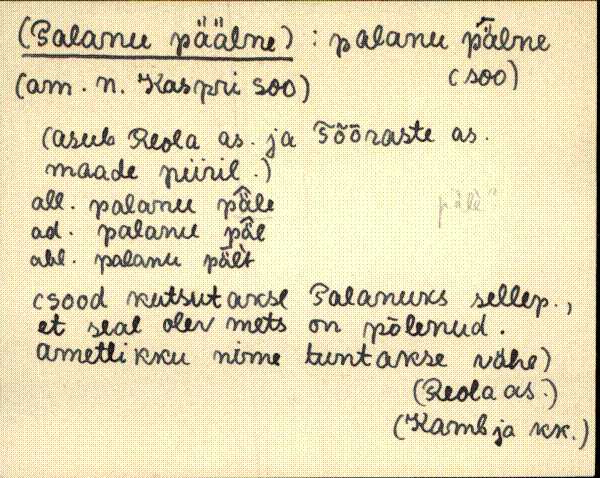 (Palanu päälne) : palanu pǟlne
(am. n. Kaspri soo) (soo)
(asub Reola as. ja Tõõraste as.
maade piiril.)
all. palanu pä̂le
pälè?
ad. palanu pä̂l
abl. palanu pält
(sood kutsutakse Palanuks sellep.,
et seal olev mets on põlenud.
Ametlikku nime tuntakse vähe)
(Reola as.)
(Kambja kk.)